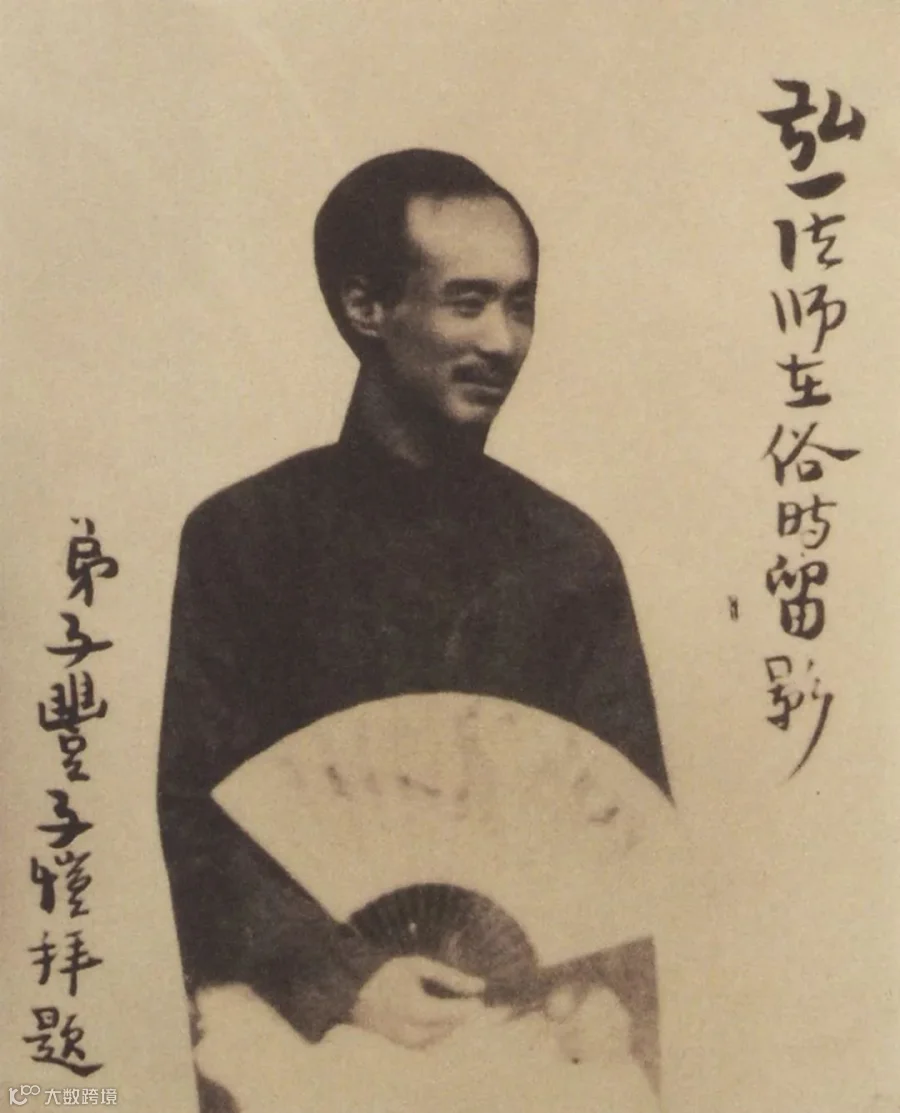 弘一法师在俗時留影
弟子豐子愷拜题
大数跨境